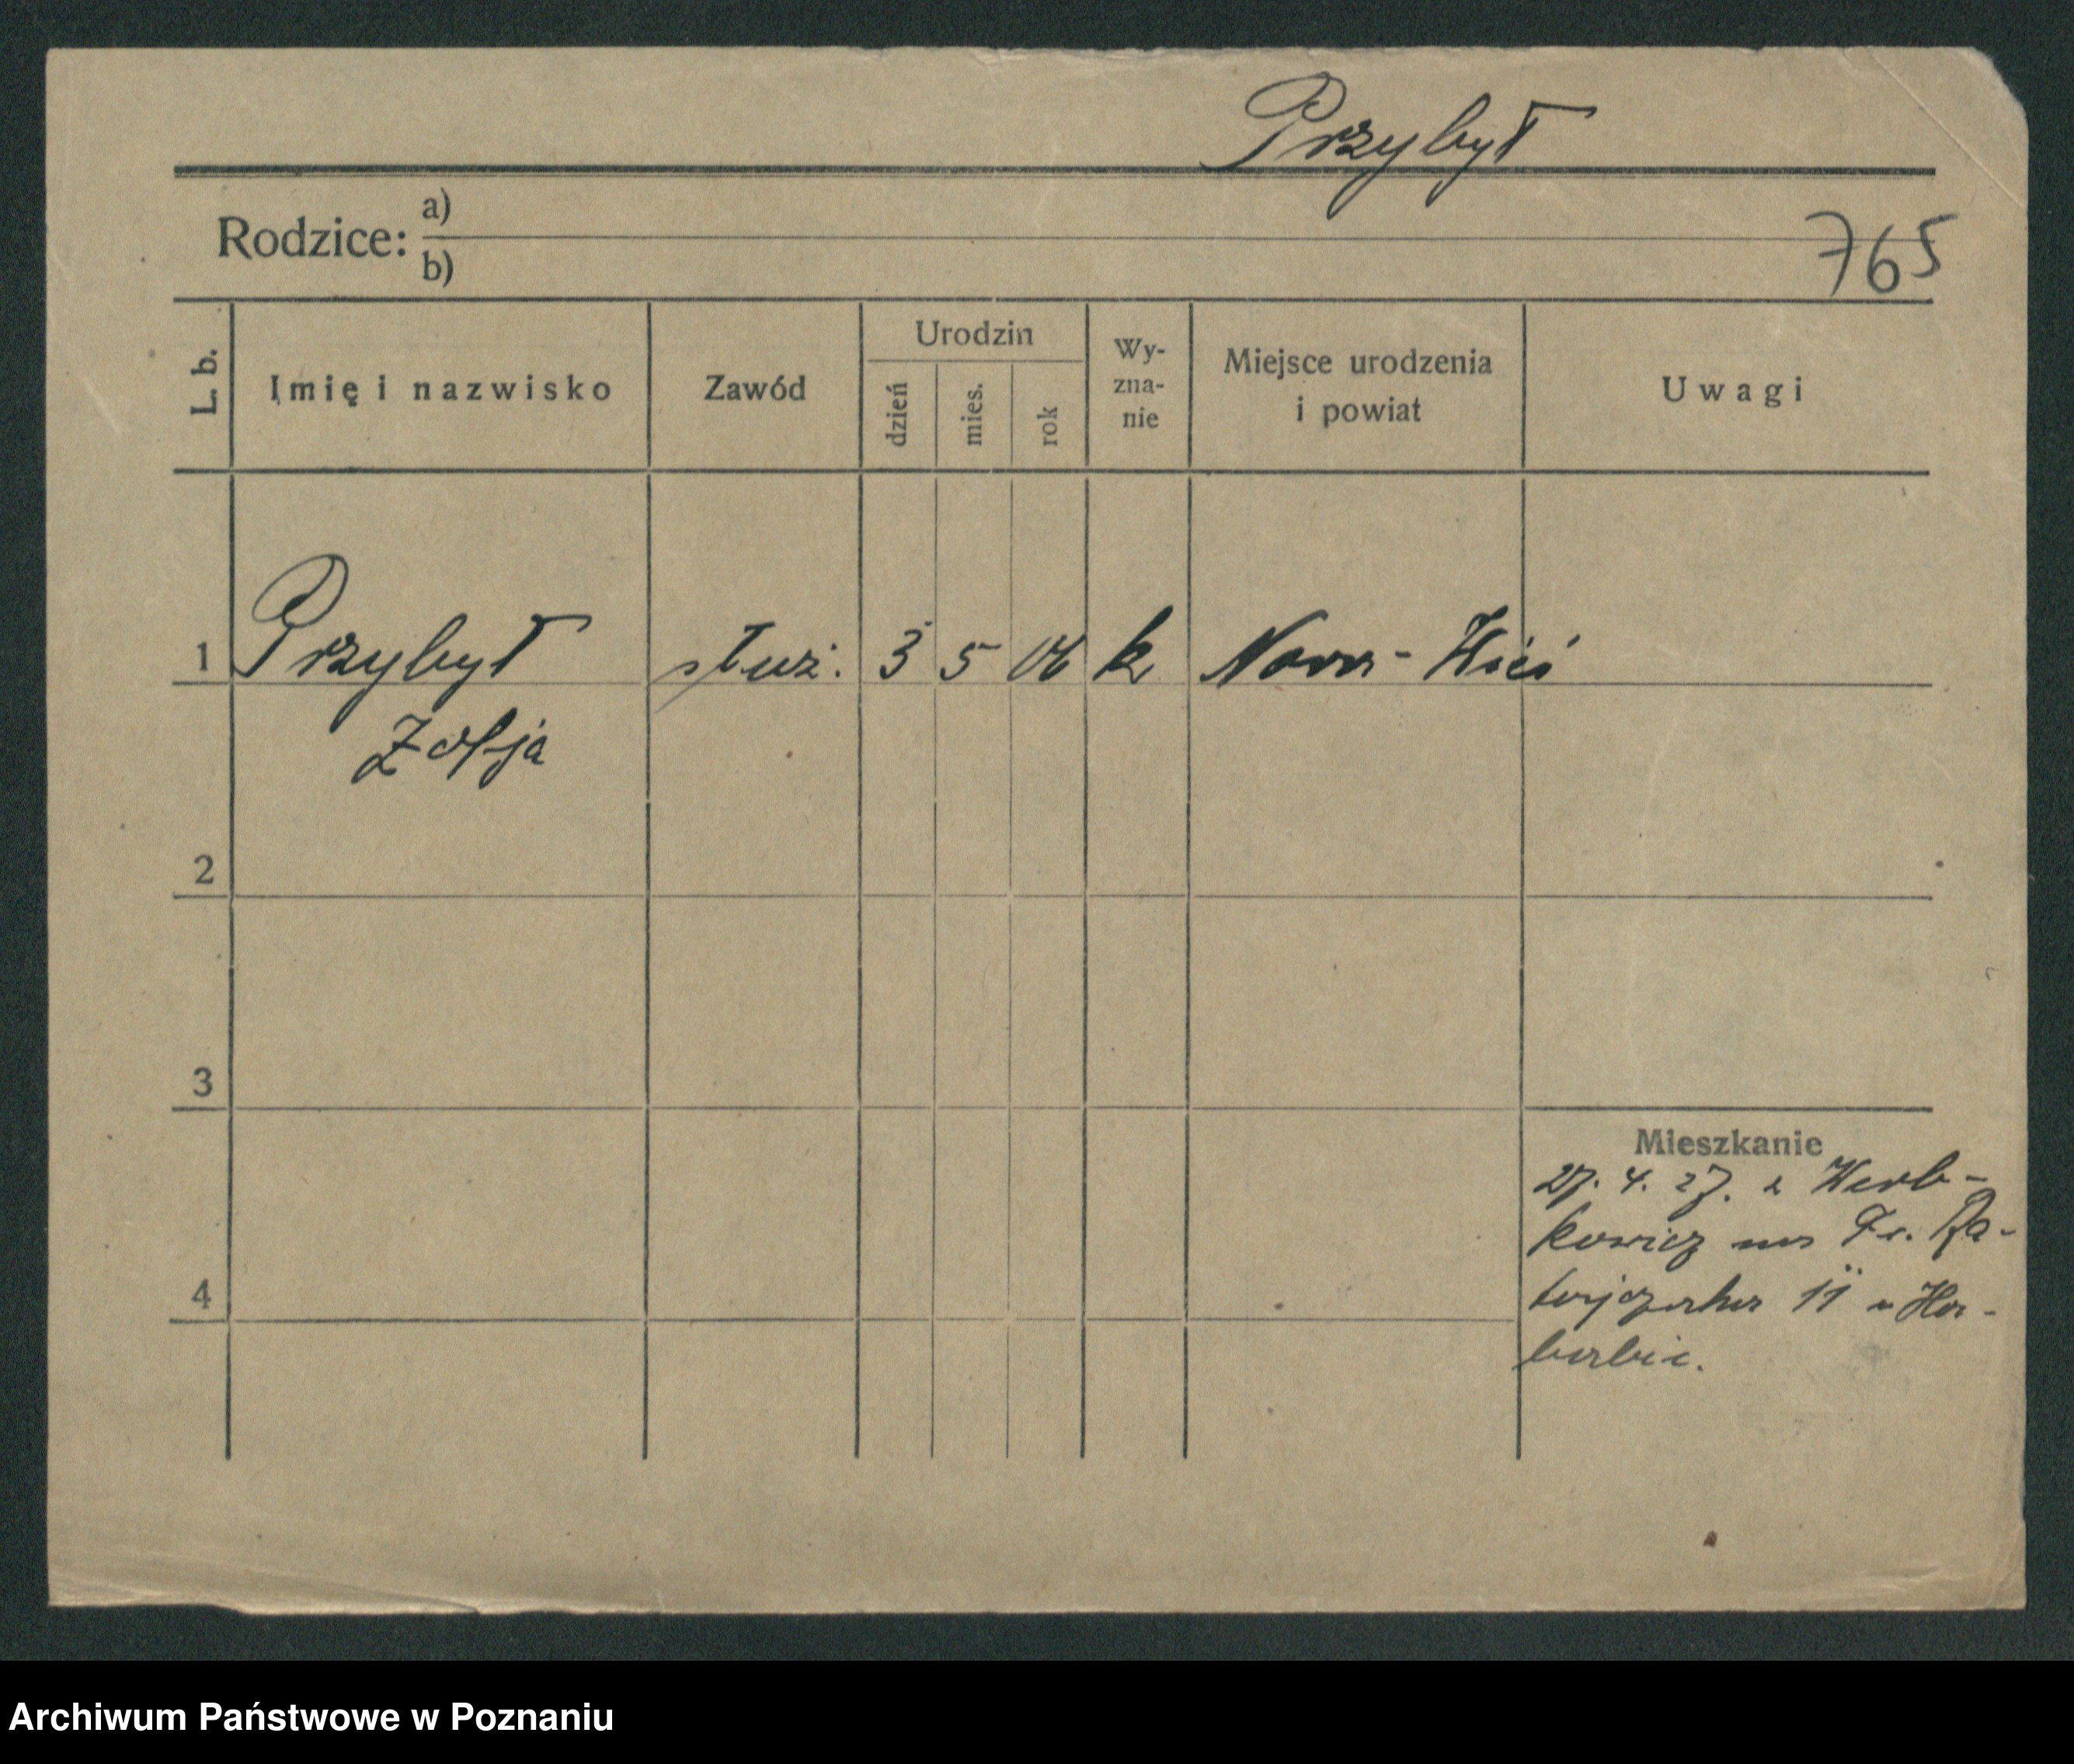 Przybył
Rodzice: a)
b)
765
L. b. Imię i nazwisko Zawód Urodzin dzień mies. rok Wy-zna-nie Miejsce urodzenia i powiat Uwagi
1 Przybył służ. 3 5 06 k Nowa-Wieś
Zofja
2
3
Mieszkanie
27. 4. 27. z Werb-
kowicz na Fr. Ra-
tajczaka 11 u Ha-
4
Archiwum Państwowe w Poznaniu